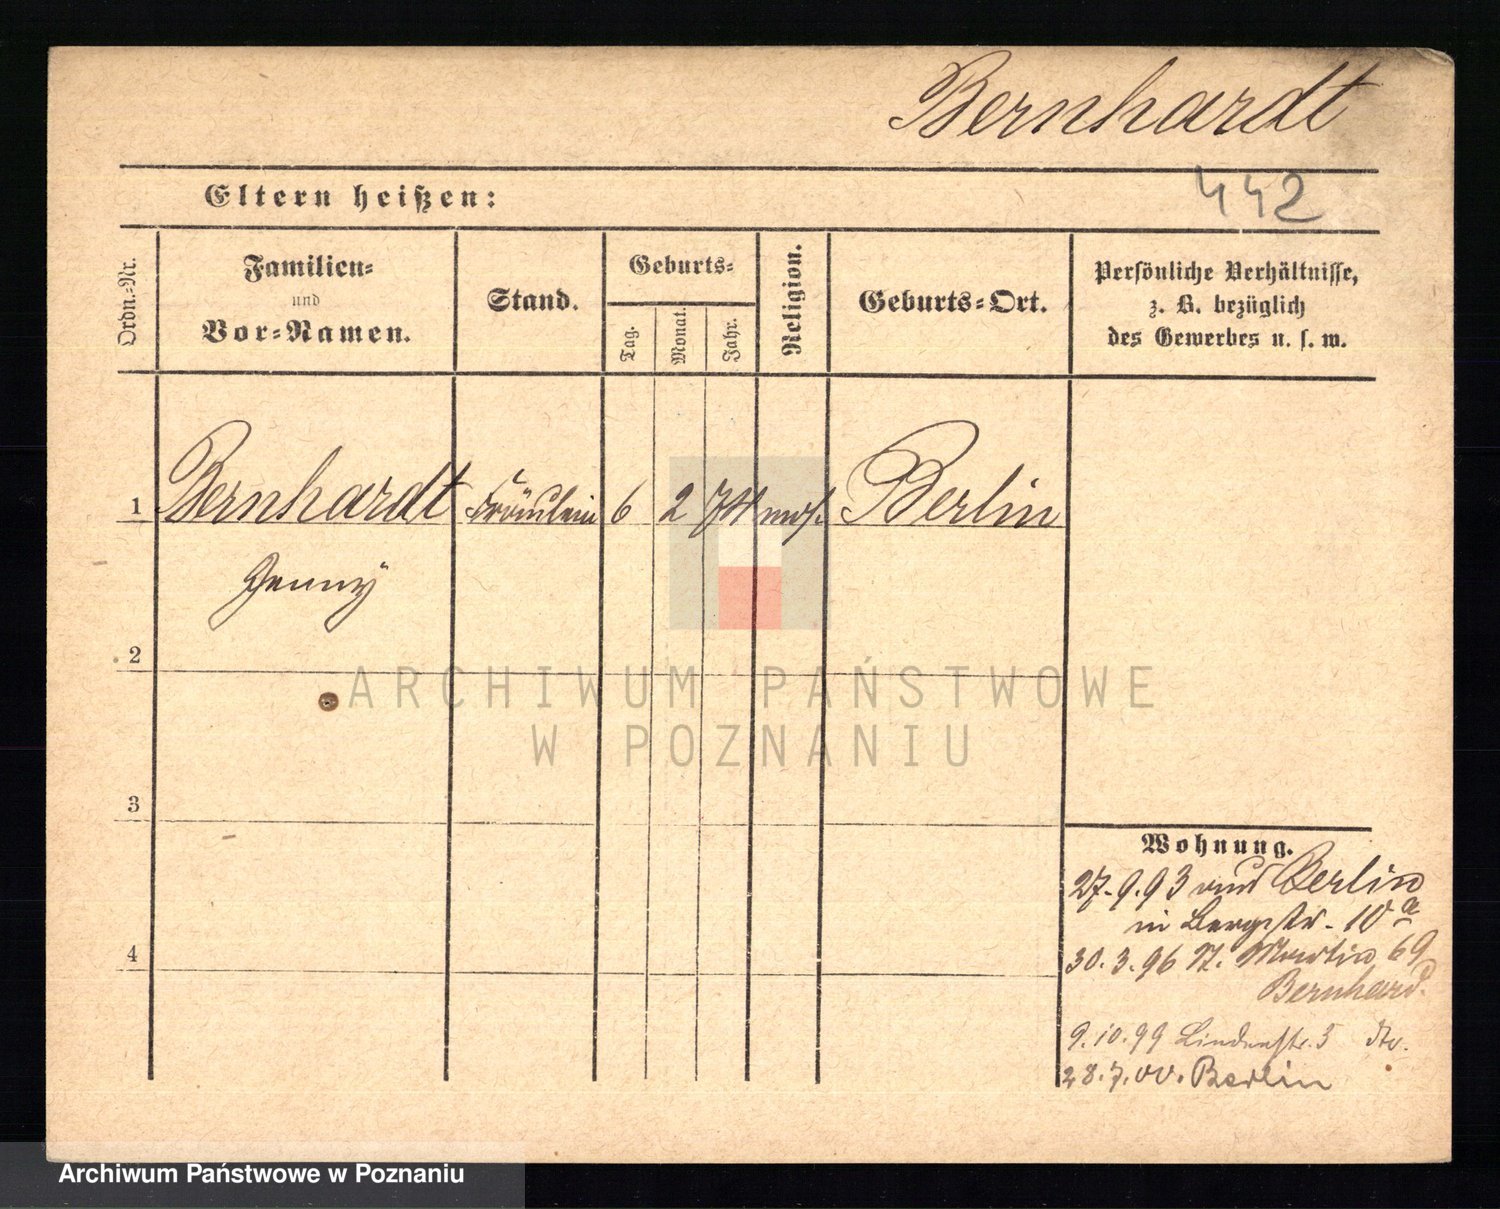 Bernhardt
442
Eltern heißen:
Ordn.-Nr.
Familien-
und
Vor-Namen.
Stand.
Geburts-
Tag.
Monat.
Jahr.
Religion.
Geburts-Ort.
Persönliche Verhältnisse,
z. B. bezüglich
des Gewerbes u. s. w.
1 Bernhardt Fräulein 6 2 mos. Berlin
Jenny
2
3
4
Wohnung.
27.9.93 aus Berlin
in Bergstr. 10a
30.3.96 St. Martin 69
Bernhard.
9.10.99 Lindenstr. 5 dto.
28.7.00. Berlin
ARCHIWUM PAŃSTWOWE
W POZNANIU
Archiwum Państwowe w Poznaniu